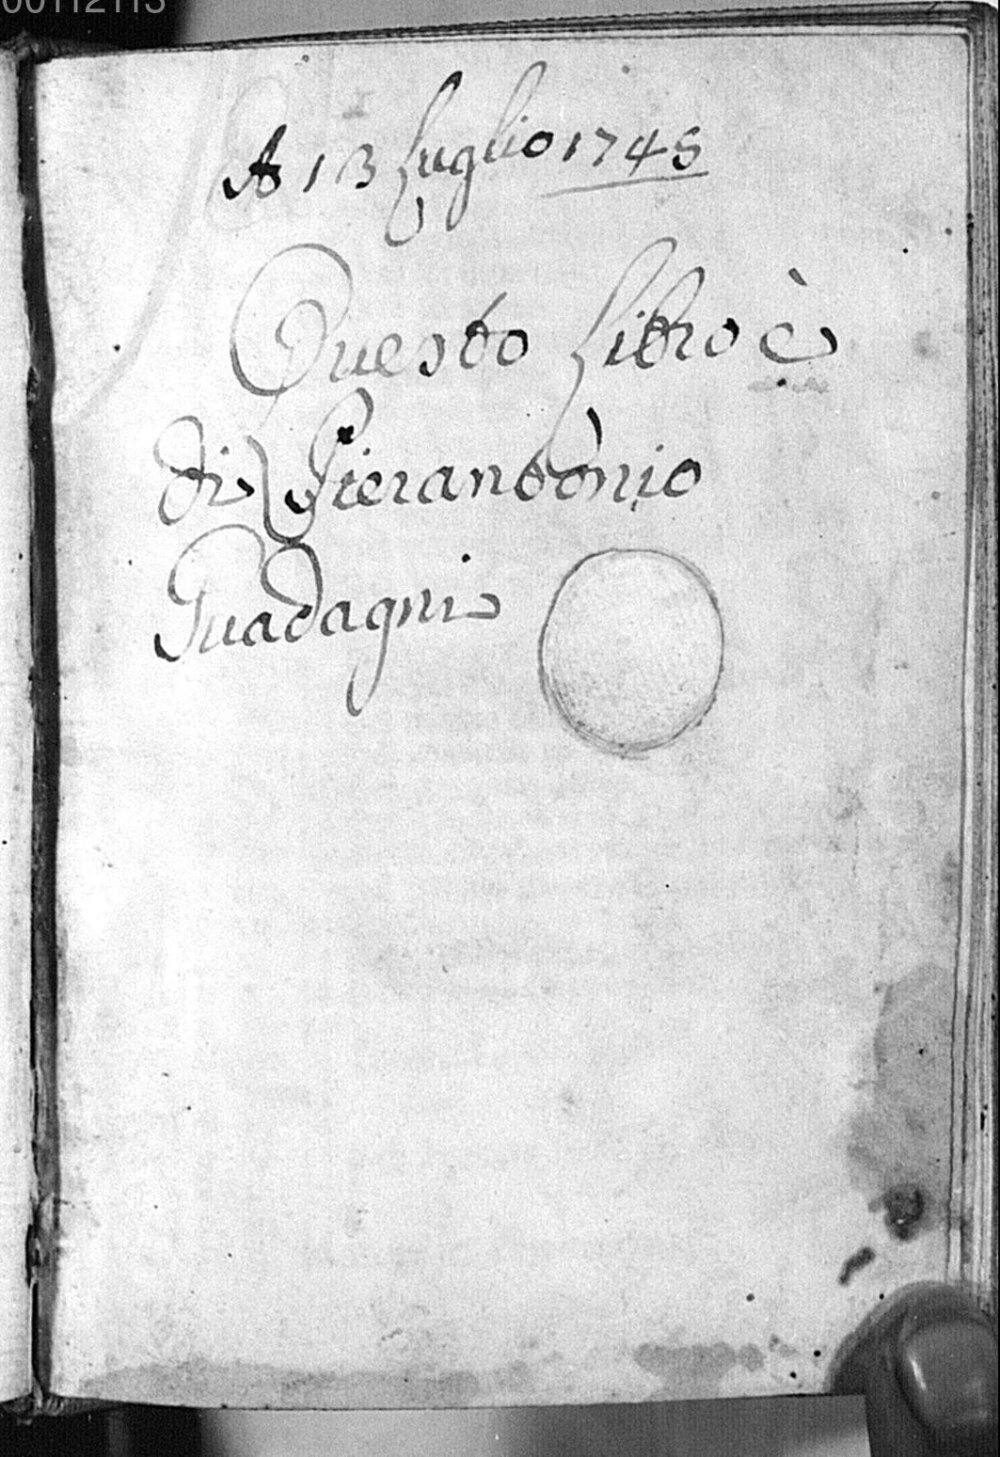 00112113
A 13 Luglio 1745
Questo Libro è
di Pierantònio
Guadagni